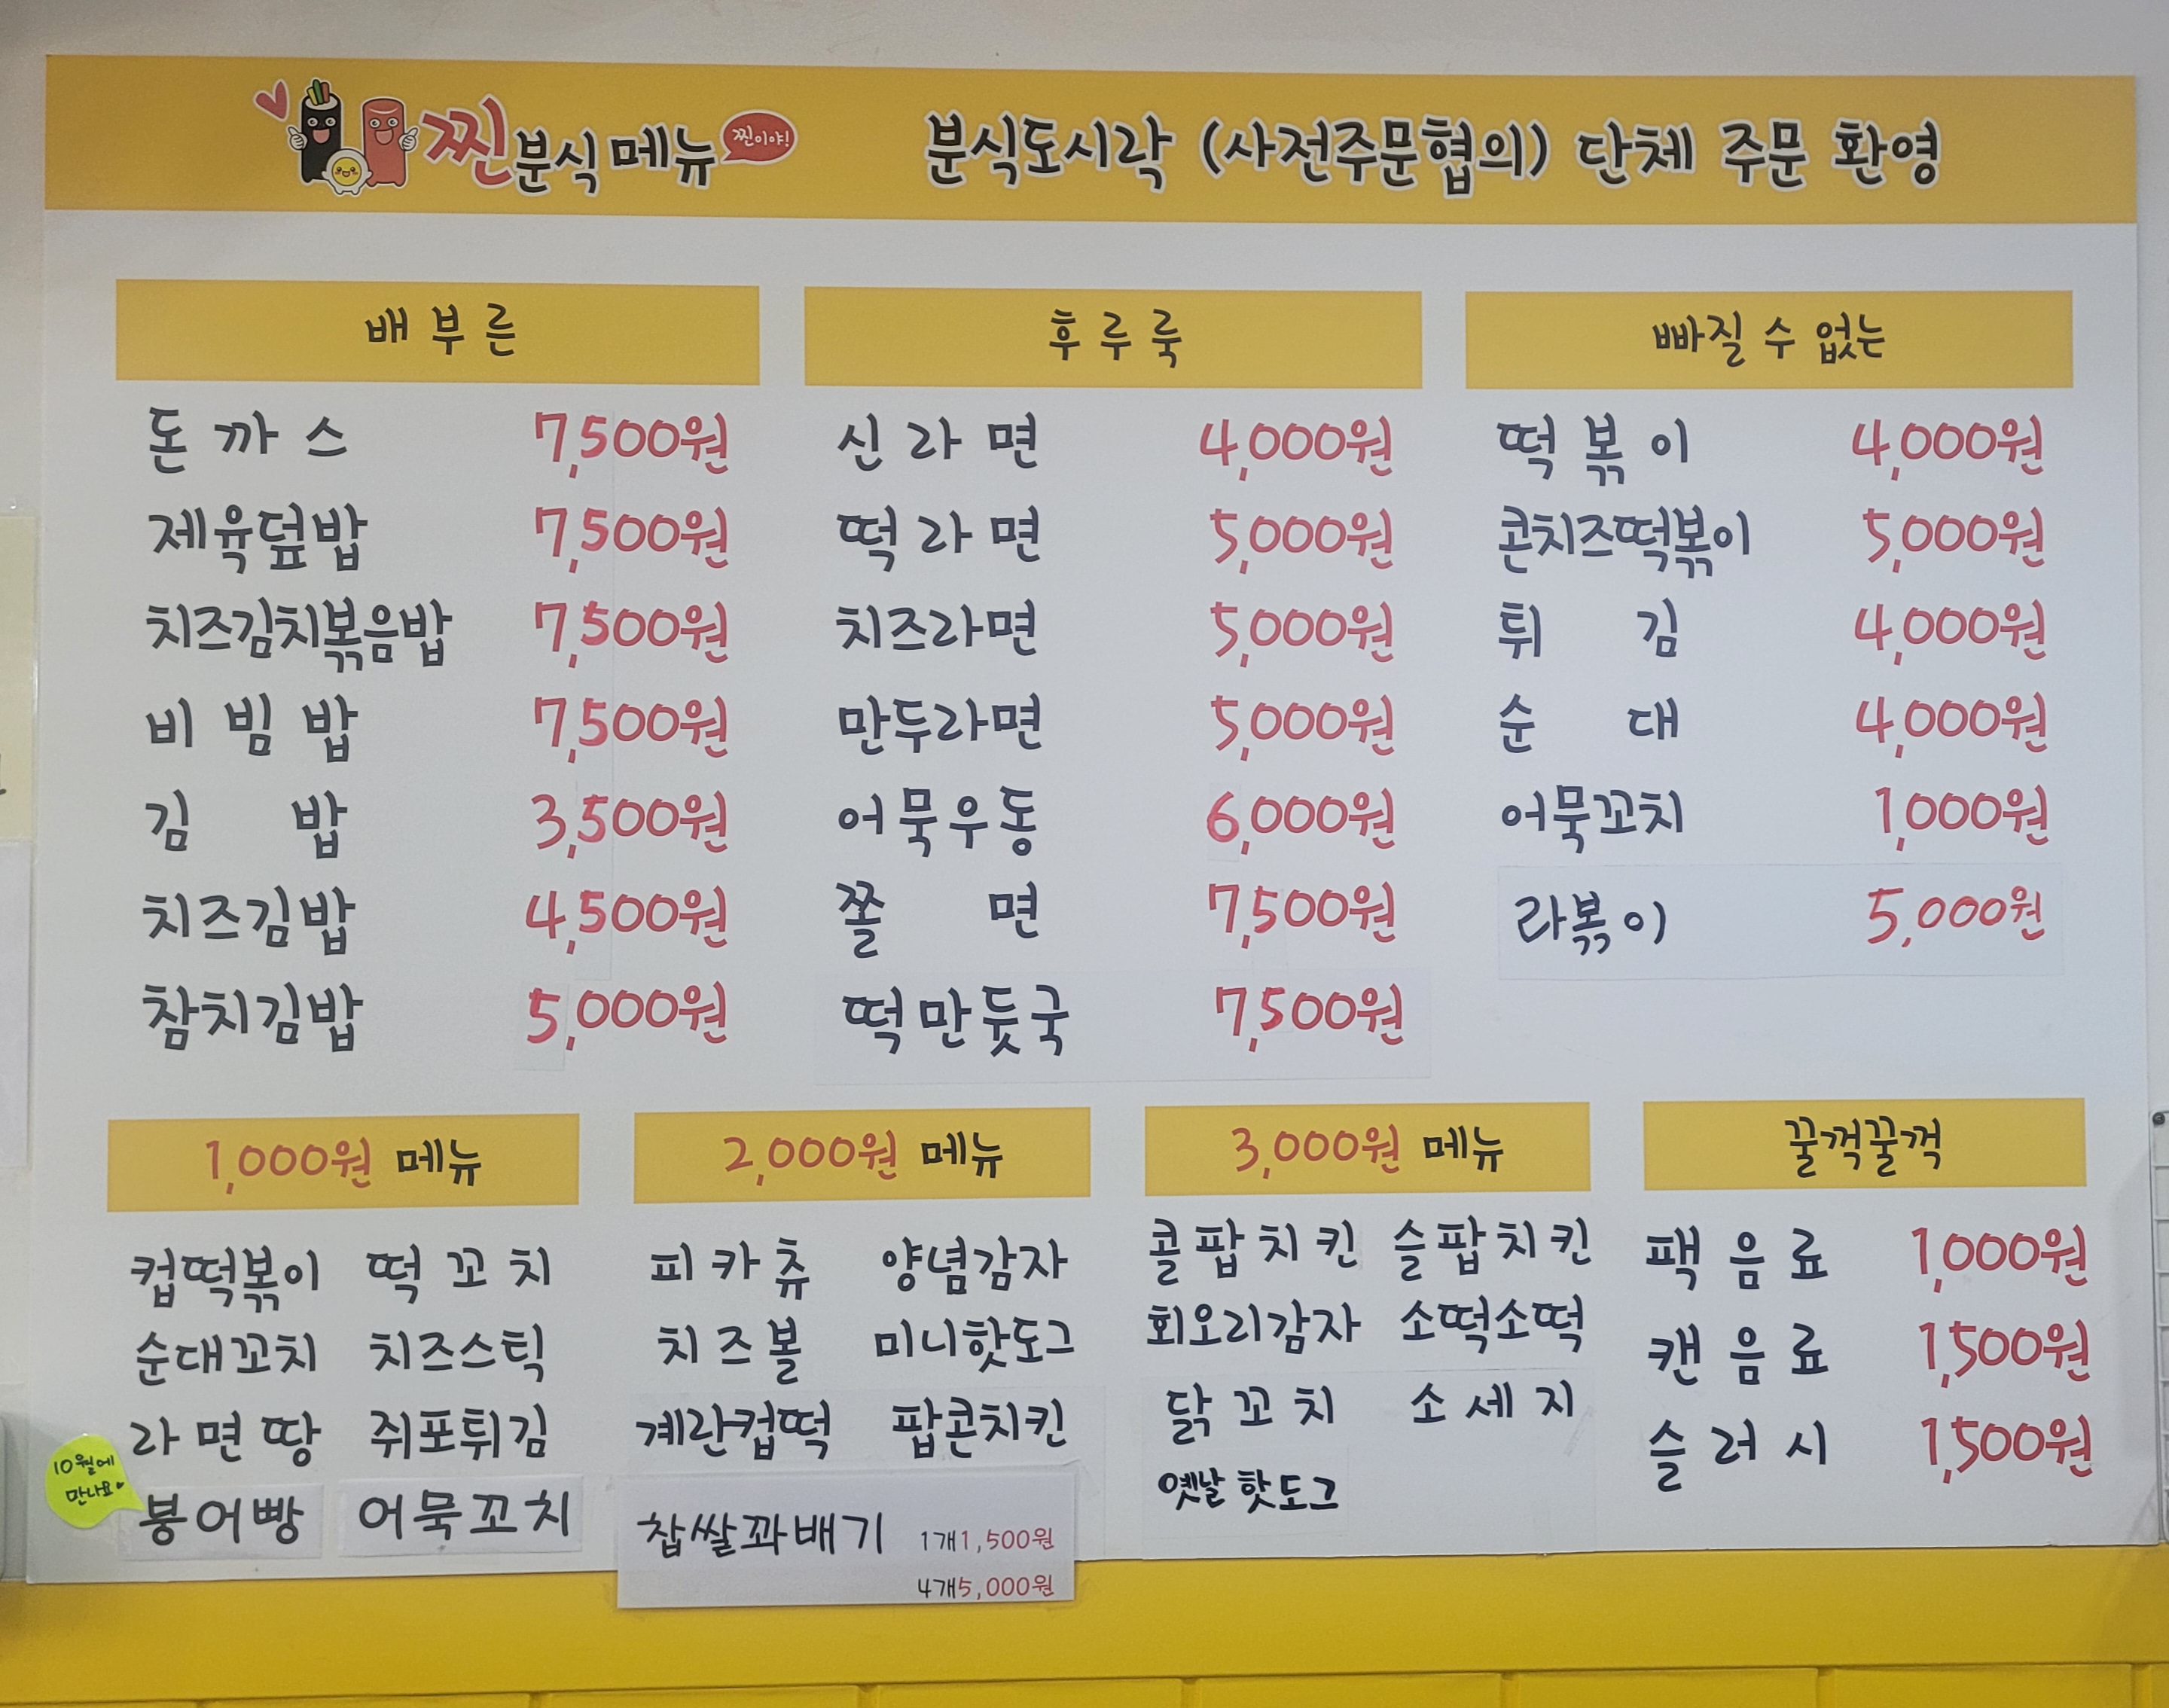 찐분식메뉴 찐이야!
분식도시락 (사전주문협의) 단체 주문 환영
배부른
돈까스 7,500원
제육덮밥 7,500원
치즈김치볶음밥 7,500원
비빔밥 7,500원
김밥 3,500원
치즈김밥 4,500원
참치김밥 5,000원
후루룩
신라면 4,000원
떡라면 5,000원
치즈라면 5,000원
만두라면 5,000원
어묵우동 6,000원
쫄면 7,500원
떡만듯국 7,500원
빠질 수 없는
떡볶이 4,000원
콘치즈떡볶이 5,000원
튀김 4,000원
순대 4,000원
어묵꼬치 1,000원
라볶이 5,000원
1,000원 메뉴
컵떡볶이 떡꼬치
순대꼬치 치즈스틱
라면땅 쥐포튀김
10월에
만나요♥
붕어빵 어묵꼬치
2,000원 메뉴
피카츄 양념감자
치즈볼 미니핫도그
계란컵떡 팝콘치킨
찹쌀꽈배기 1개1,500원
4개5,000원
3,000원 메뉴
콜팝치킨 슬팝치킨
회오리감자 소떡소떡
닭꼬치 소세지
옛날 핫도그
꿀꺽꿀꺽
팩음료 1,000원
캔음료 1,500원
슬러시 1,500원